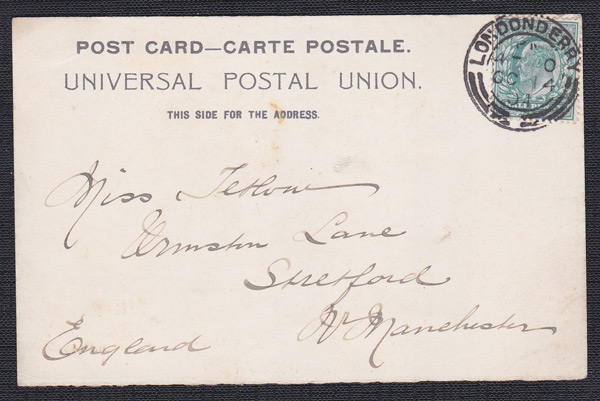 POST CARD—CARTE POSTALE.
UNIVERSAL POSTAL UNION.
THIS SIDE FOR THE ADDRESS.
LONDONDERRY
Miss Tetlow
Urmston Lane
Stretford
Nr Manchester
England